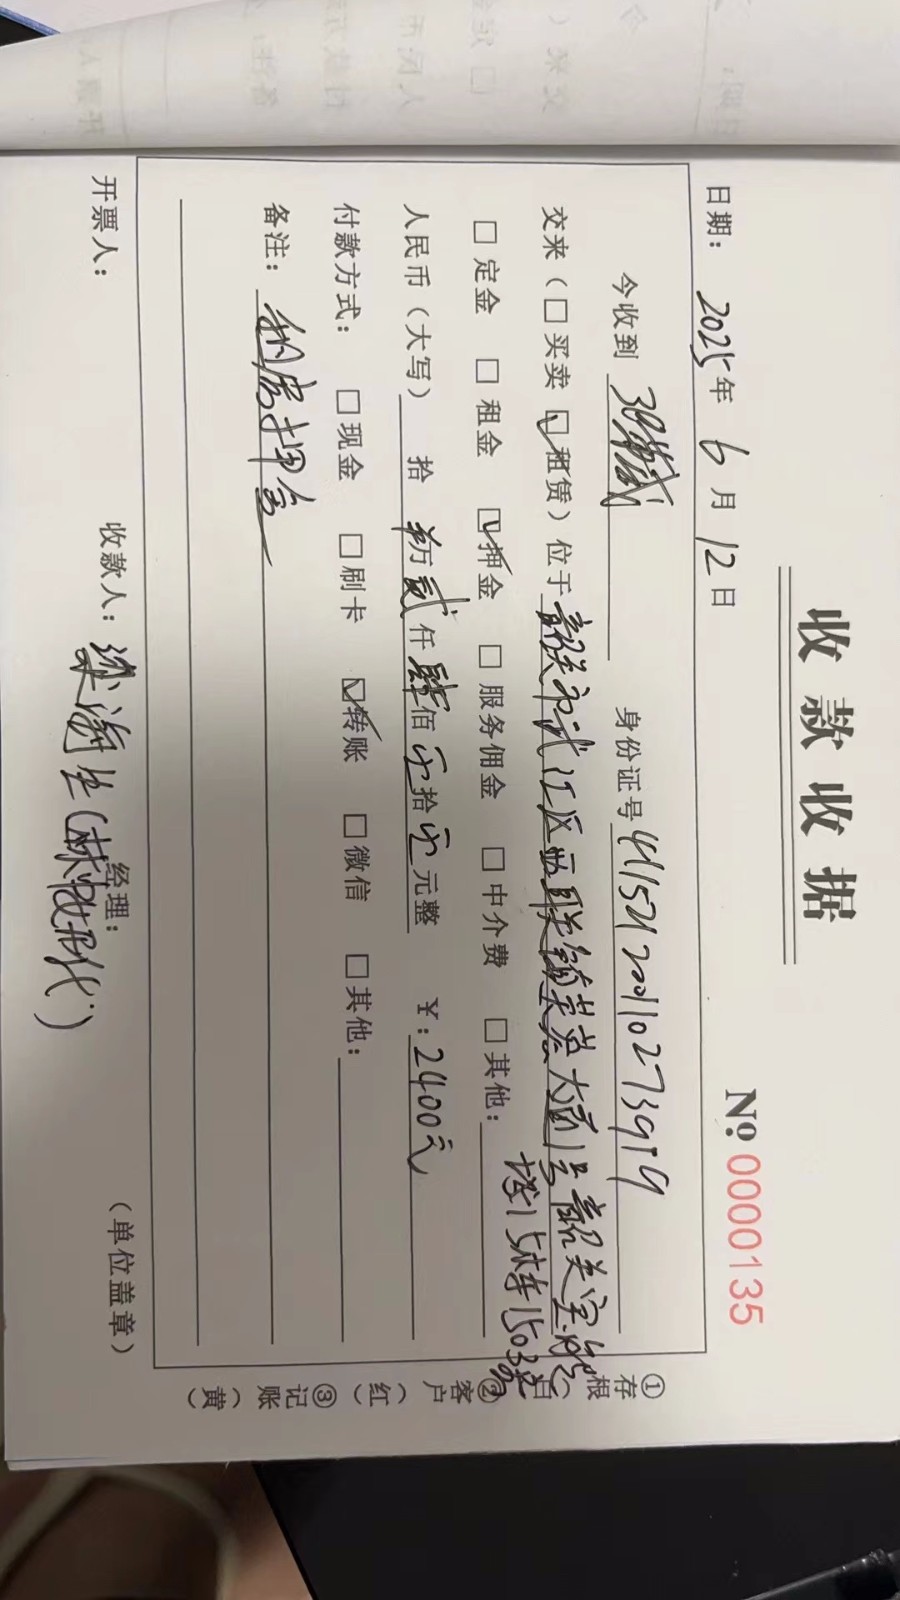 收款收据
No 0000135
日期： 2025年 6月 12日
今收到 身份证号 411521200110273919
交来（□买卖 ☑租赁）位于 韶关市武江区西联镇芙蓉大道1号韶关
1503
□定金 □租金 ☑押金 □服务佣金 □中介费 □其他：
人民币（大写） 拾 万贰仟肆佰零拾零元整 ￥：2400元
付款方式： □现金 □刷卡 ☑转账 □微信 □其他：
备注： 租房押金
开票人： 收款人： 梁海生 经理： （单位盖章）
①存根（白） ②客户（红） ③记账（黄）